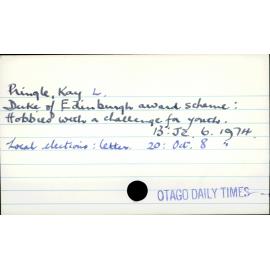 Pringle, Kay L.
Duke of Edinburgh award scheme:
Hobbies with a challenge for youth.
13: Je. 6. 1974.
Local elections: letter. 20: Oct. 8 "
OTAGO DAILY TIMES